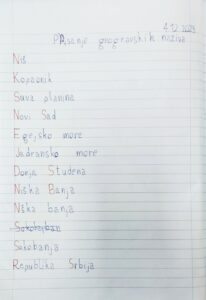 4.12.2023
Pisanje geografskih naziva
Niš
Kopaonik
Suva planina
Novi Sad
Egejsko more
Jadransko more
Donja Studena
Niška Banja
Nška banja
Sokobanja
Republika Srbija